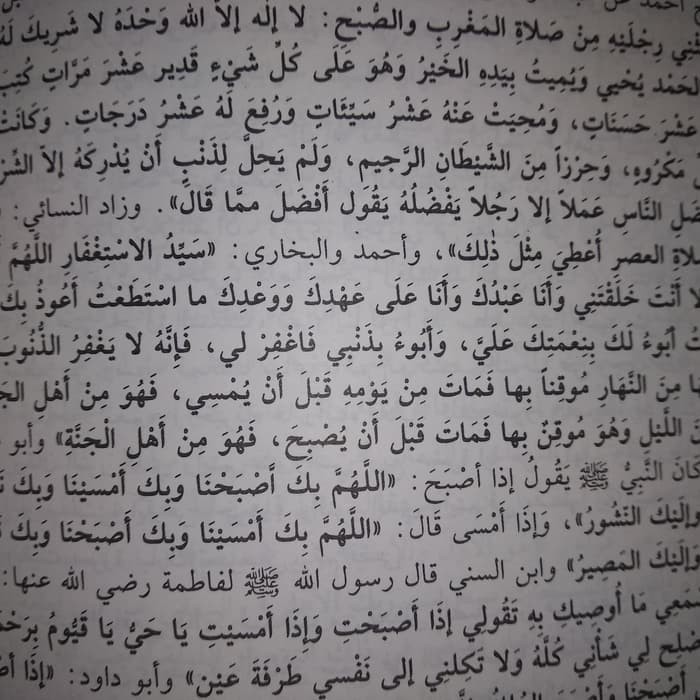 رِجْلَيْهِ مِنْ صَلَاةِ المَغْرِبِ والصُّبْحِ: لا إله إلاَّ الله وَحْدَهُ لا شَرِيكَ لَهُ
الحَمْد يُحْيي وَيُمِيتُ بِيَدِهِ الخَيْرُ وَهُوَ عَلَى كُلِّ شَيْءٍ قَدِير عَشْرَ مَرَّاتٍ كُتِبَ
عَشْرَ حَسَنَاتٍ، وَمُحِيَتْ عَنْهُ عَشْرُ سَيِّئَاتٍ وَرُفِعَ لَهُ عَشْرُ دَرَجَاتٍ. وَكَانَتْ
مَكْرُوهٍ، وَحِرْزاً مِنَ الشَّيْطَانِ الرَّجِيمِ، وَلَمْ يَحِلَّ لِذَنْبٍ أَنْ يُدْرِكَهُ إلاَّ الشِّرْ
النَّاسِ عَمَلاً إلا رَجُلاً يَفْضُلُهُ يَقُول أَفْضَلَ ممَّا قَالَ». وزاد النسائي:
العصرِ أُعْطِيَ مِثْلَ ذٰلِكَ»، وأحمد والبخاري: «سَيِّدُ الاسْتِغْفَارِ اللَّهُمَّ
أَنْتَ خَلَقْتَنِي وَأَنَا عَبْدُكَ وَأَنَا عَلَى عَهْدِكَ وَوَعْدِكَ ما اسْتَطَعْتُ أَعُوذُ بِكَ
أبُوءُ لَكَ بِنِعْمَتِكَ عَلَيَّ، وَأَبُوءُ بِذَنْبِي فَاغْفِرْ لي، فَإنَّهُ لا يَغْفِرُ الذُّنُوبَ
مِنَ النَّهَارِ مُوقِناً بِها فَمَاتَ مِنْ يَوْمِهِ قَبْلَ أَنْ يُمْسِي، فَهُوَ مِنْ أَهْلِ
اللَّيْلِ وَهُوَ مُوقِنٌ بِها فَمَاتَ قَبْلَ أَنْ يُصْبِحَ، فَهُوَ مِنْ أَهْلِ الْجَنَّةِ» وأبو
كَانَ النَّبِيُّ ﷺ يَقُولُ إذا أصْبَحَ: «اللَّهُمَّ بِكَ أَصْبَحْنَا وَبِكَ أَمْسَيْنَا وَبِكَ
وإليكَ النُّشُورُ»، وَإذَا أَمْسَى قَالَ: «اللَّهُمَّ بِكَ أَمْسَيْنَا وَبِكَ أَصْبَحْنَا وَبِكَ
وإليكَ المَصِيرُ» وابن السني قال رسول الله ﷺ لفاطمة رضي الله عنها:
مَا أُوصِيكِ بِهِ تَقُولي إذَا أَصْبَحْتِ وَإذَا أَمْسَيْتِ يَا حَيُّ يَا قَيُّومُ بِرَحْمَ
لِي شَأْنِي كُلَّهُ وَلا تَكِلْنِي إلى نَفْسي طَرْفَةَ عَيْنٍ» وأبو داود: «إذَا